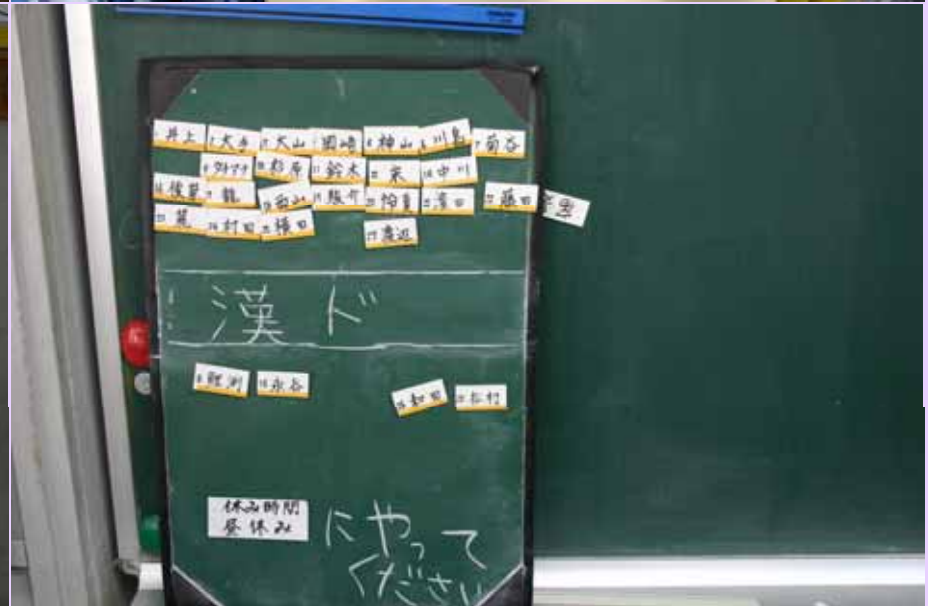 井上 大寺 大山 岡崎 神山 川島 菊谷
タトマナ 杉原 鈴木 泉 中川
後藤 龍 西山 駿介 濱田 藤田
村田 横田 渡辺
漢ド
鯉渕 永谷 和田 松村
休み時間
昼休み
にやって
ください